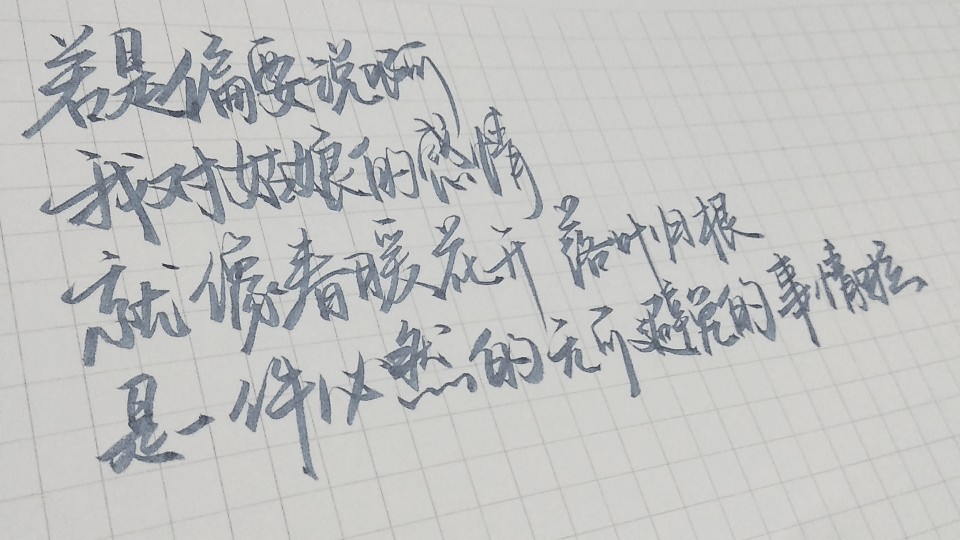 若是偏要说啊
我对姑娘的感情
就像春暖花开 落叶归根
是一件必然的无可避免的事情啦